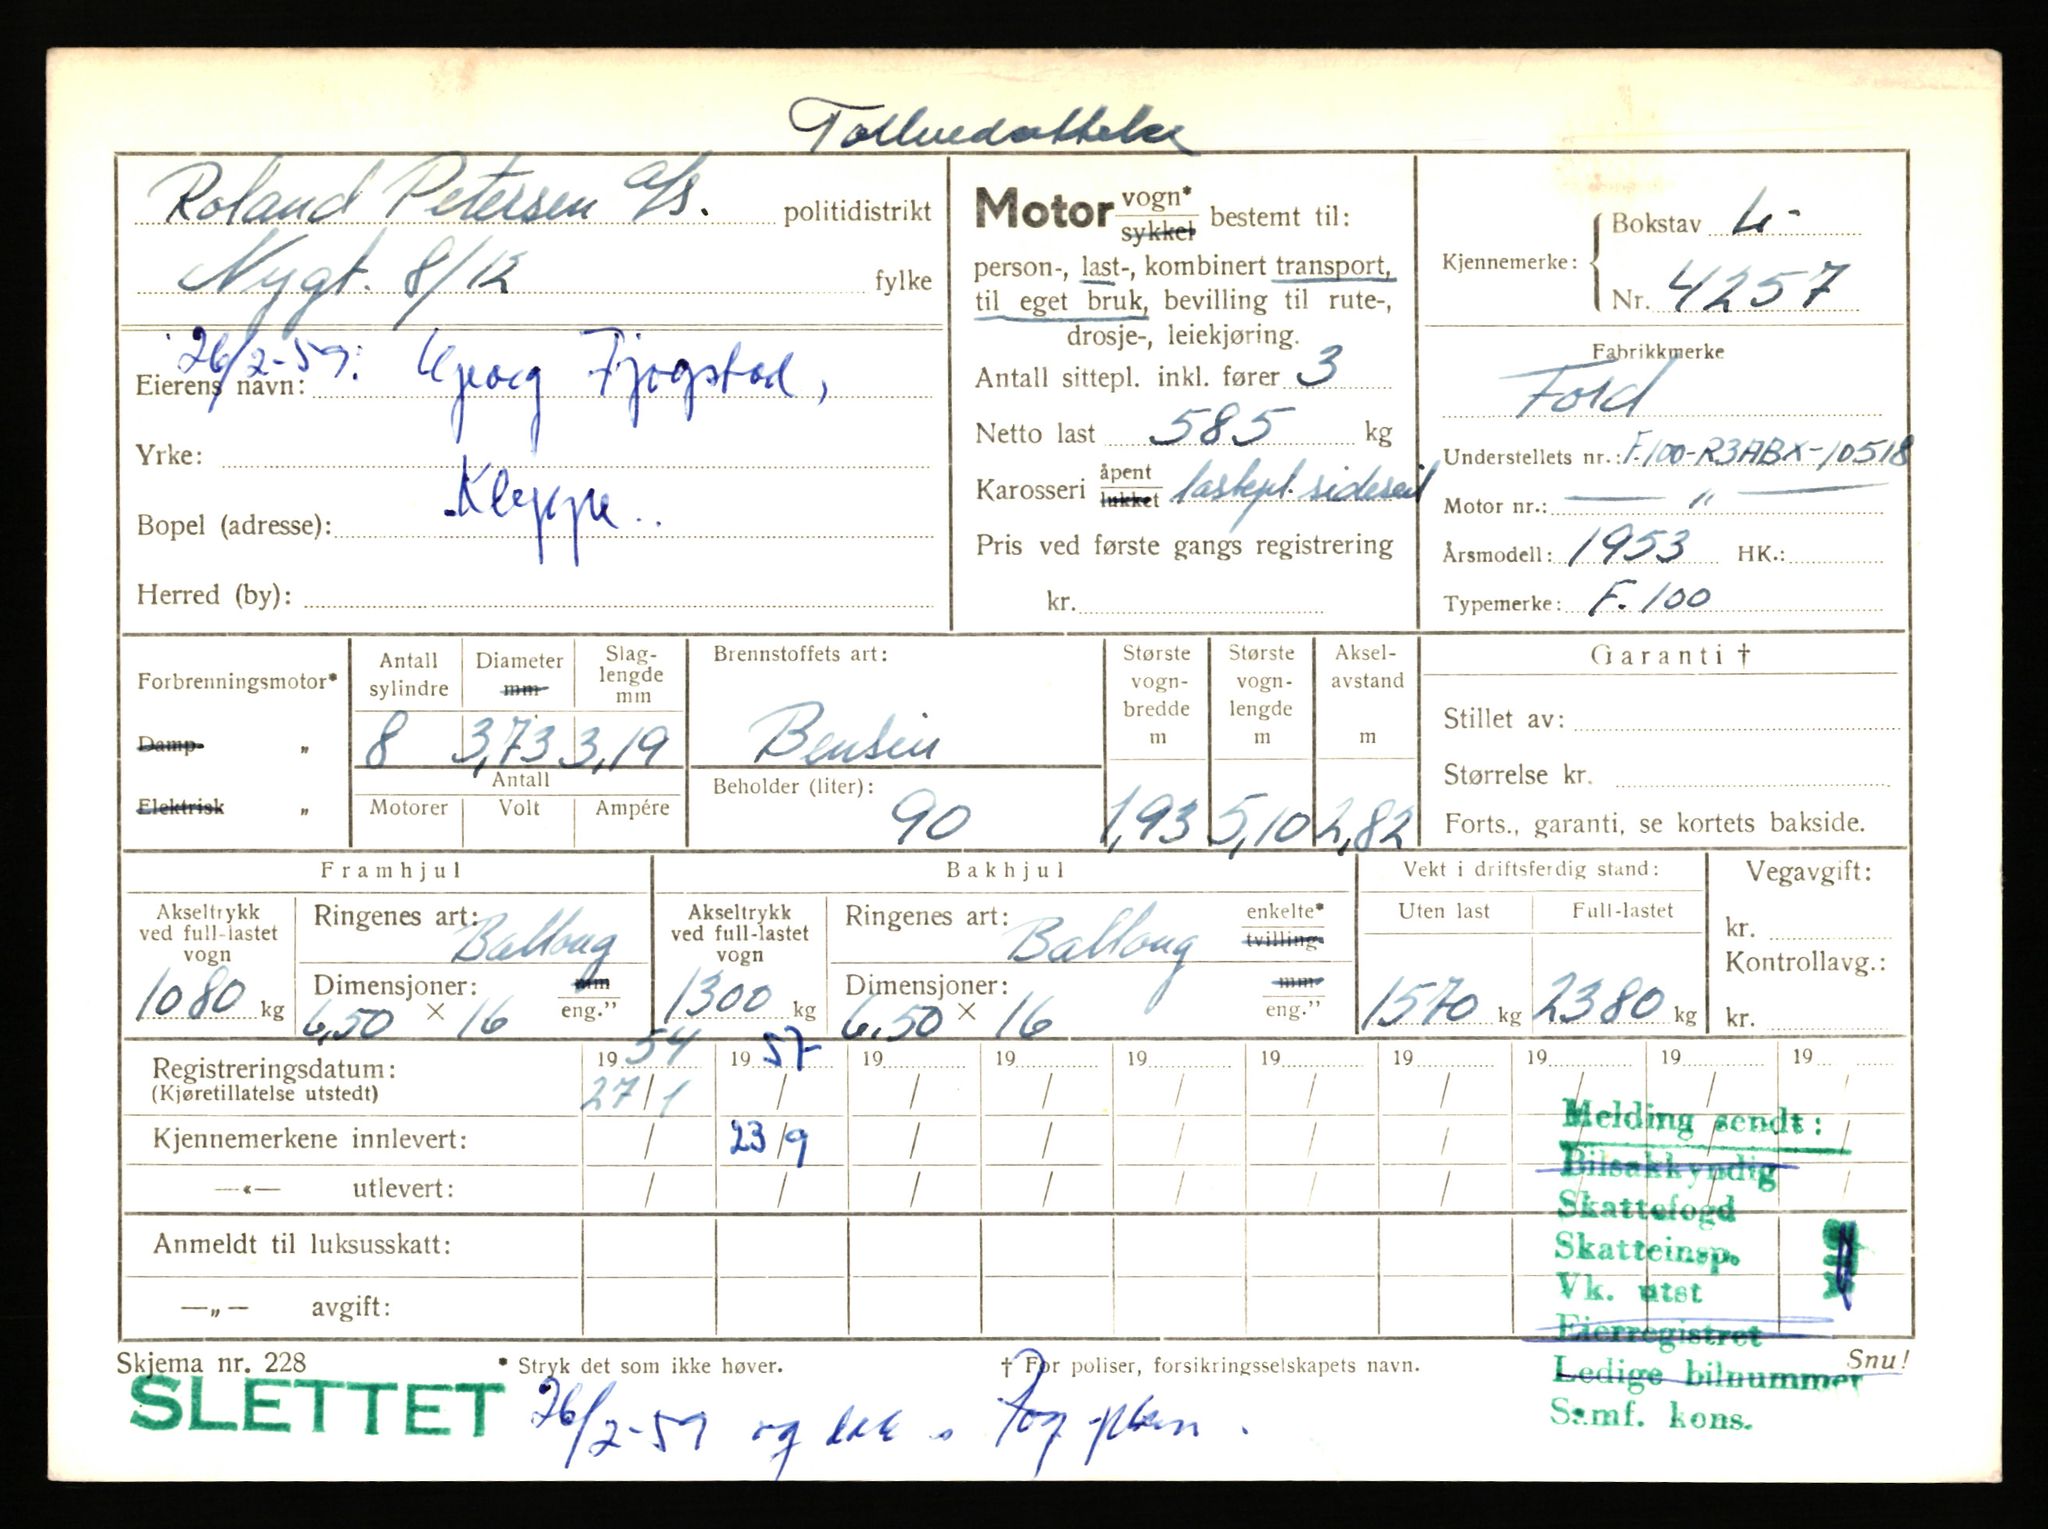 Tollvedattelse
Roland Petersen a/s. politidistrikt
Nygt. 8/12 fylke
26/2-59: Fjogstad,
Eierens navn:
Yrke:
Kleppe
Bopel (adresse):
Herred (by):
Motor vogn* sykkel bestemt til:
person-, last-, kombinert transport,
til eget bruk, bevilling til rute-,
drosje-, leiekjøring.
Antall sittepl. inkl. fører 3
Netto last 585 kg
Karosseri åpent lukket lastepl. sideseil
Pris ved første gangs registrering
kr.
Kjennemerke: Bokstav L-
Nr. 4257
Fabrikkmerke
Ford
Understellets nr.: F.100-R3ABX-10518
Motor nr.: — „ —
Årsmodell: 1953 HK.:
Typemerke: F.100
Forbrenningsmotor*
Damp- „
Elektrisk „
Antall sylindre 8
Diameter mm 3,73
Slaglengde mm 3,19
Antall
Motorer Volt Ampére
Brennstoffets art:
Bensin
Beholder (liter):
90
Største vognbredde m 1,93
Største vognlengde m 5,10
Akselavstand m 2,82
Garanti †
Stillet av:
Størrelse kr.
Forts., garanti, se kortets bakside.
Framhjul
Akseltrykk ved full-lastet vogn 1080 kg
Ringenes art: Ballong
Dimensjoner: mm
6,50 × 16 eng."
Bakhjul
Akseltrykk ved full-lastet vogn 1300 kg
Ringenes art: Ballong enkelte* tvilling
Dimensjoner: mm
6.50 × 16 eng."
Vekt i driftsferdig stand:
Uten last 1570 kg
Full-lastet 2380 kg
Vegavgift:
kr.
Kontrollavg.:
kr.
Registreringsdatum: 19 54 19 57 19 19 19 19 19 19 19 19
(Kjøretillatelse utstedt) 27/1 / / / / / / / / /
Kjennemerkene innlevert: / 23/9 / / / / / / / /
—«— utlevert: / / / / / / / / / /
Anmeldt til luksusskatt:
—„— avgift:
Melding sendt:
Bilsakkyndig
Skattefogd
Skatteinsp.
Vk. utst
Eierregistret
Ledige bilnummer
Samf. kons.
Skjema nr. 228 * Stryk det som ikke høver. † For poliser, forsikringsselskapets navn. Snu!
SLETTET 26/2-59 og